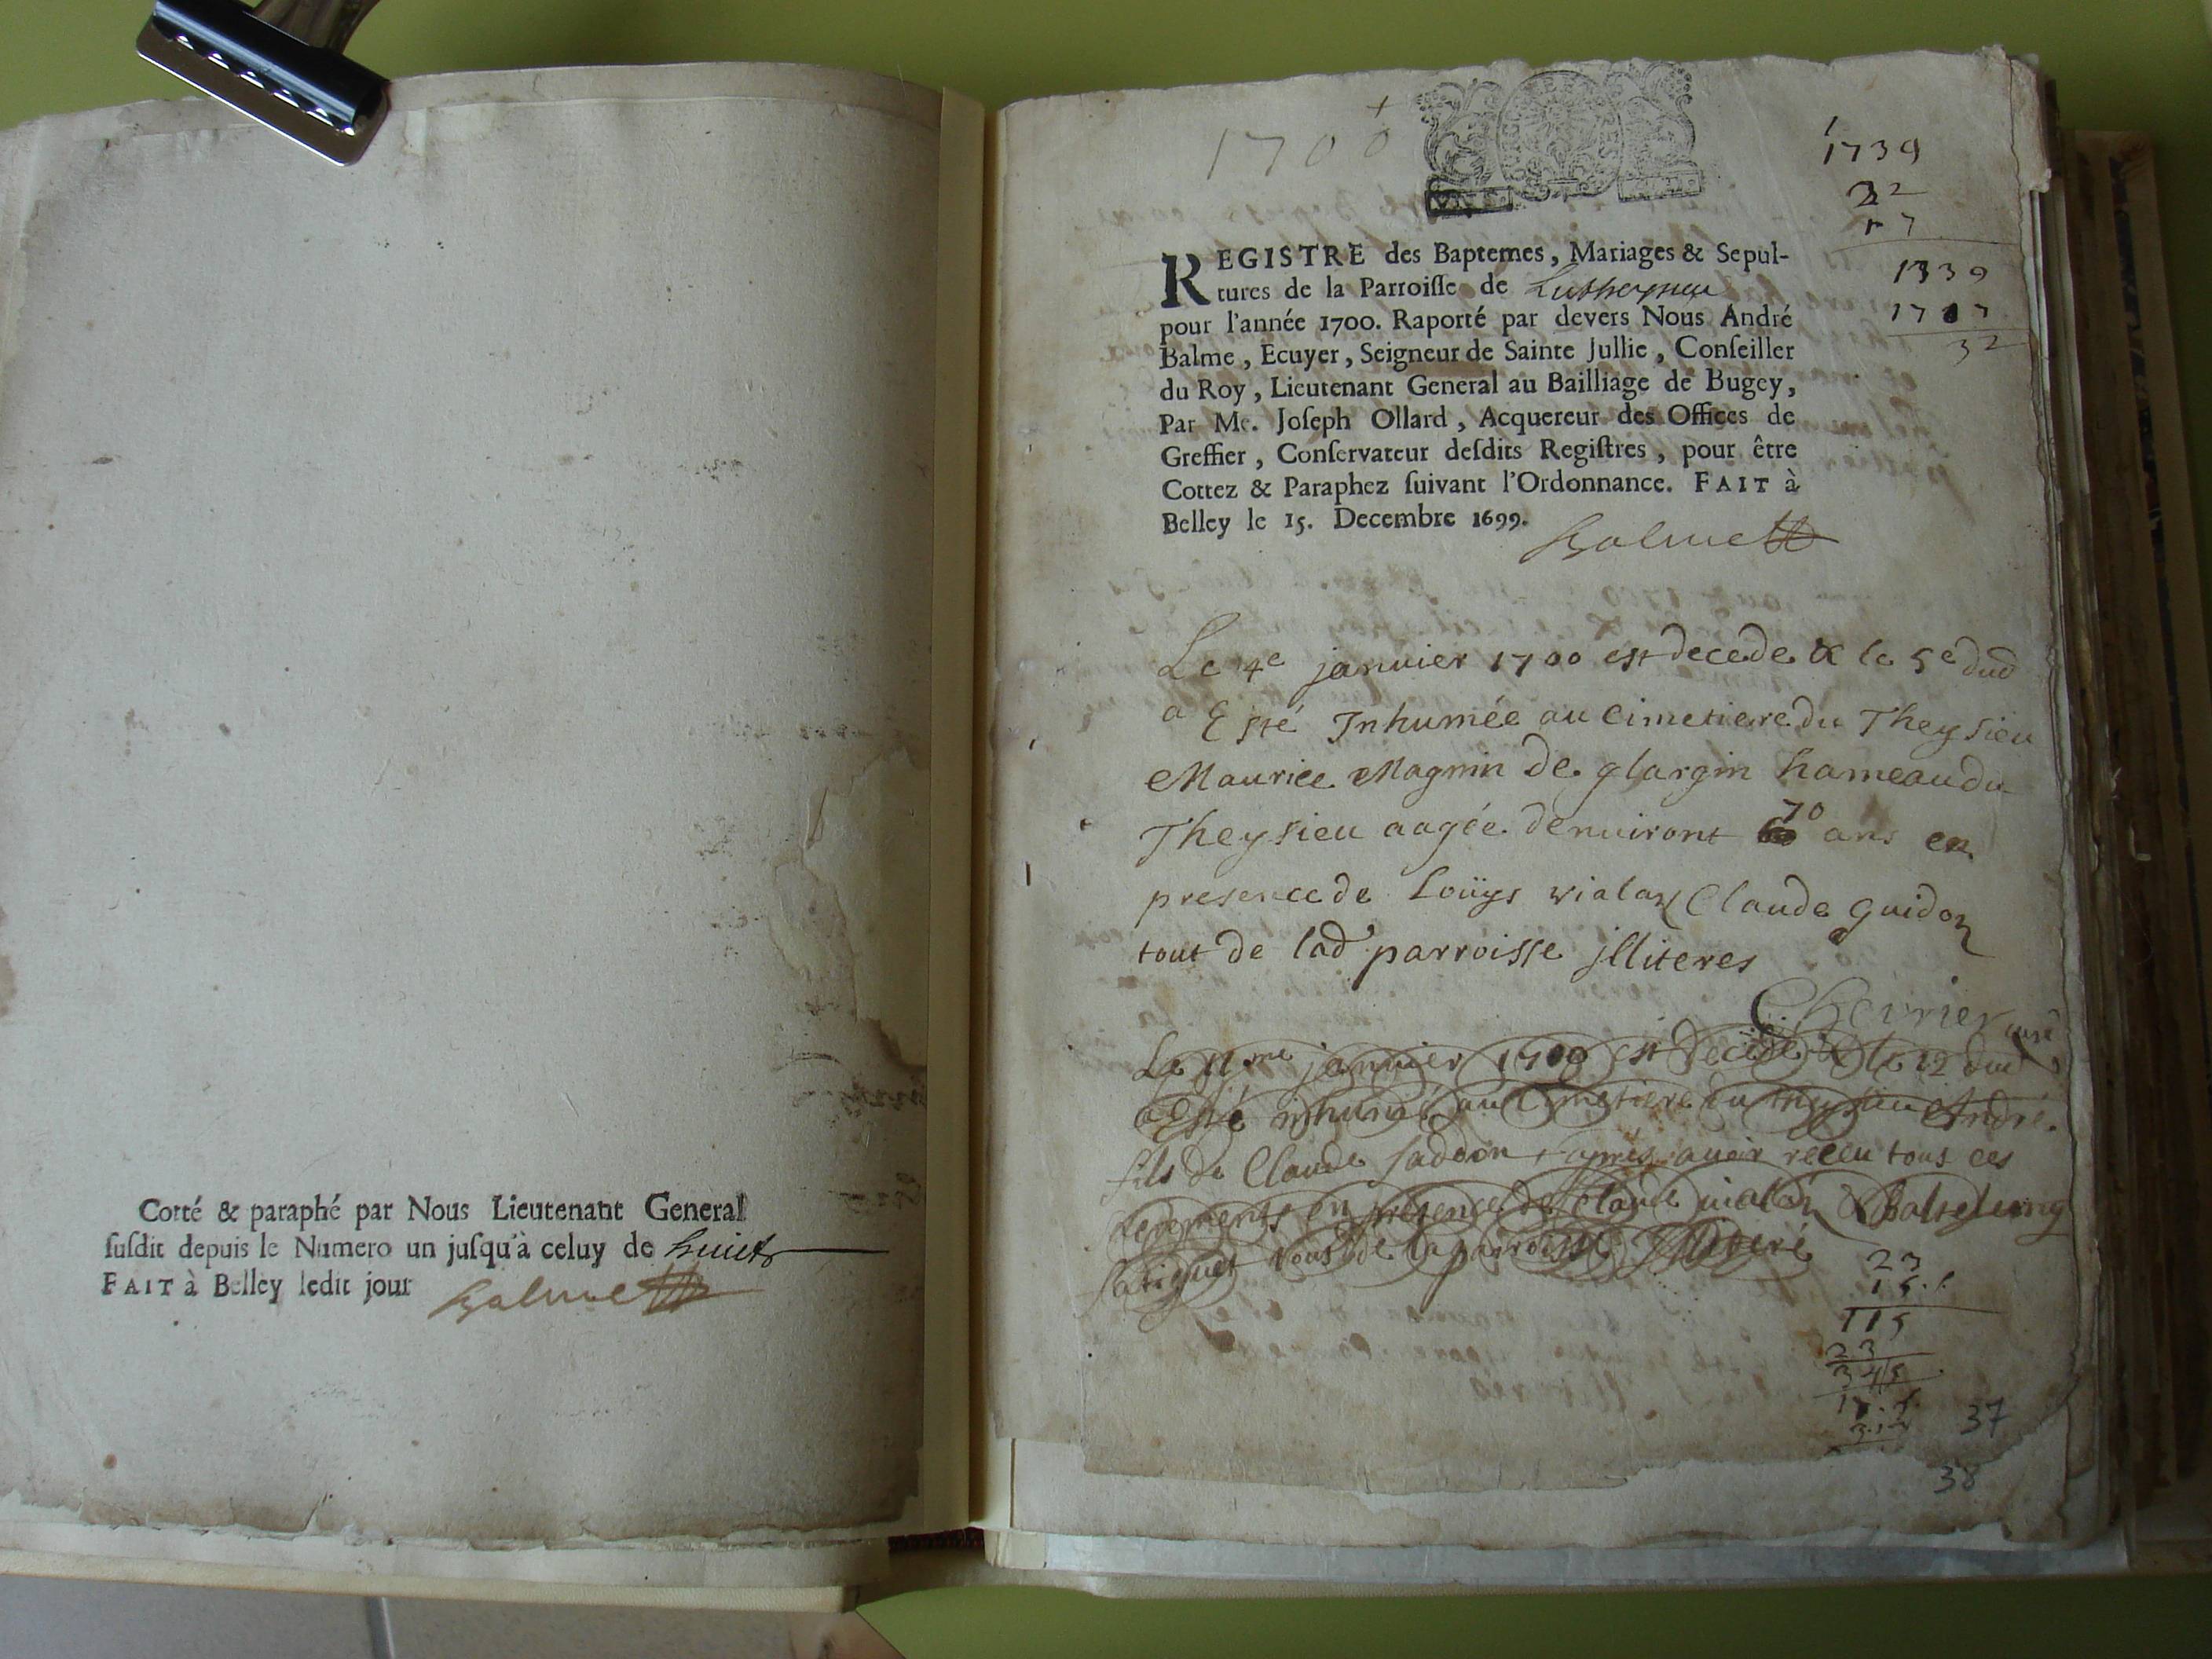 Cotté & paraphé par Nous Lieutenant General
susdit depuis le Numero un jusqu'à celuy de huict
FAIT à Belley ledit jour Balme
1700
1739
32
17
1739
1707
32
REGISTRE des Baptemes, Mariages & Sepul-
tures de la Parroisse de
pour l'année 1700. Raporté par devers Nous André
Balme, Ecuyer, Seigneur de Sainte Jullie, Conseiller
du Roy, Lieutenant General au Bailliage de Bugey,
Par Me. Joseph Ollard, Acquereur des Offices de
Greffier, Conservateur desdits Registres, pour être
Cottez & Paraphez suivant l'Ordonnance. FAIT à
Belley le 15. Decembre 1699.
Balme
Le 4e janvier 1700 est decede & le 5e dud
a Esté Inhumée au Cimetiere du Theysieu
Maurice Magnin de glargin hameau du
Theysieu aagée denuiront 70 ans en
presence de Loüys vialon Claude guidon
tout de lad parroisse jlliteres
Chevrier curé
Le 11me janvier 1700 est decede & le 12 dud
a Esté inhumé au Cimetiere du theysieu André
fils de Claude faddon apres auoir receu tous ces
en presence de Claude vialon &
tous de la parroisse Jllitere
23
15
115
23
345
37
38